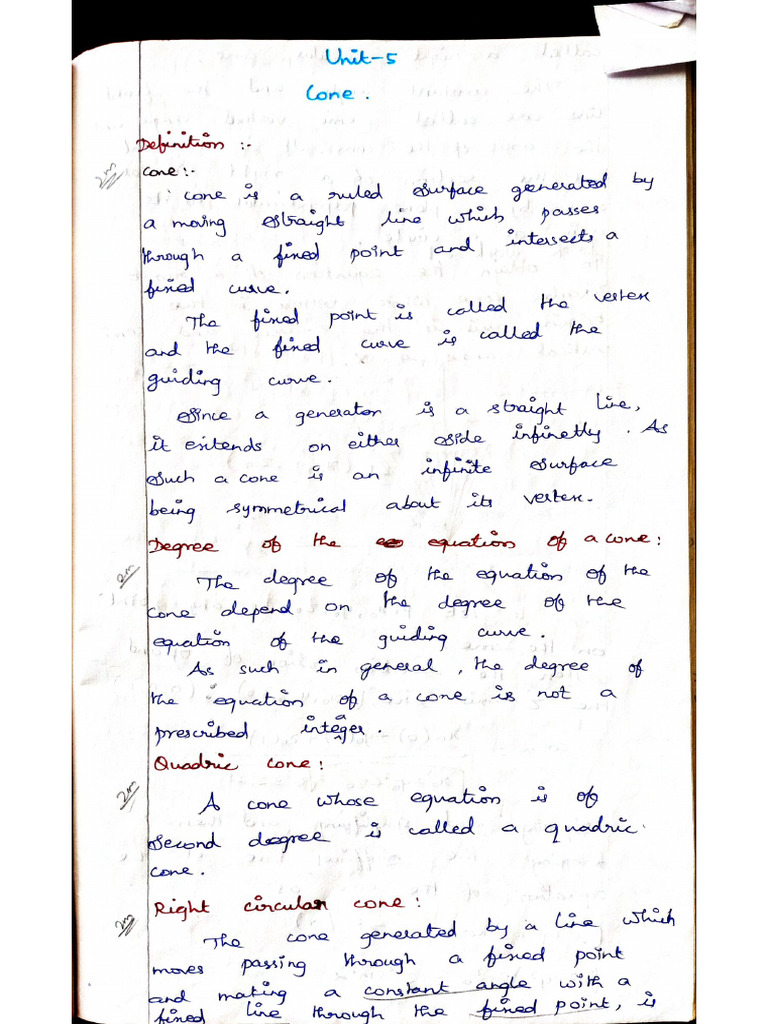 Unit-5
Cone.
Definition :-
2m
cone:-
cone is a ruled surface generated by
a moving straight line which passes
through a fixed point and intersects a
fixed curve.
The fixed point is called the vertex
and the fixed curve is called the
guiding curve.
Since a generator is a straight line,
it extends on either side infinetly. As
such a cone is an infinite surface
being symmetrical about its vertex.
Degree of the equation of a cone:
2m
The degree of the equation of the
cone depend on the degree of the
equation of the guiding curve.
As such in general, the degree of
the equation of a cone is not a
prescribed integer.
Quadric cone:
2m
A cone whose equation is of
second degree is called a quadric
cone.
Right circular cone:
2m
The cone generated by a line which
moves passing through a fixed point
and making a constant angle with a
fixed line through the fixed point, is